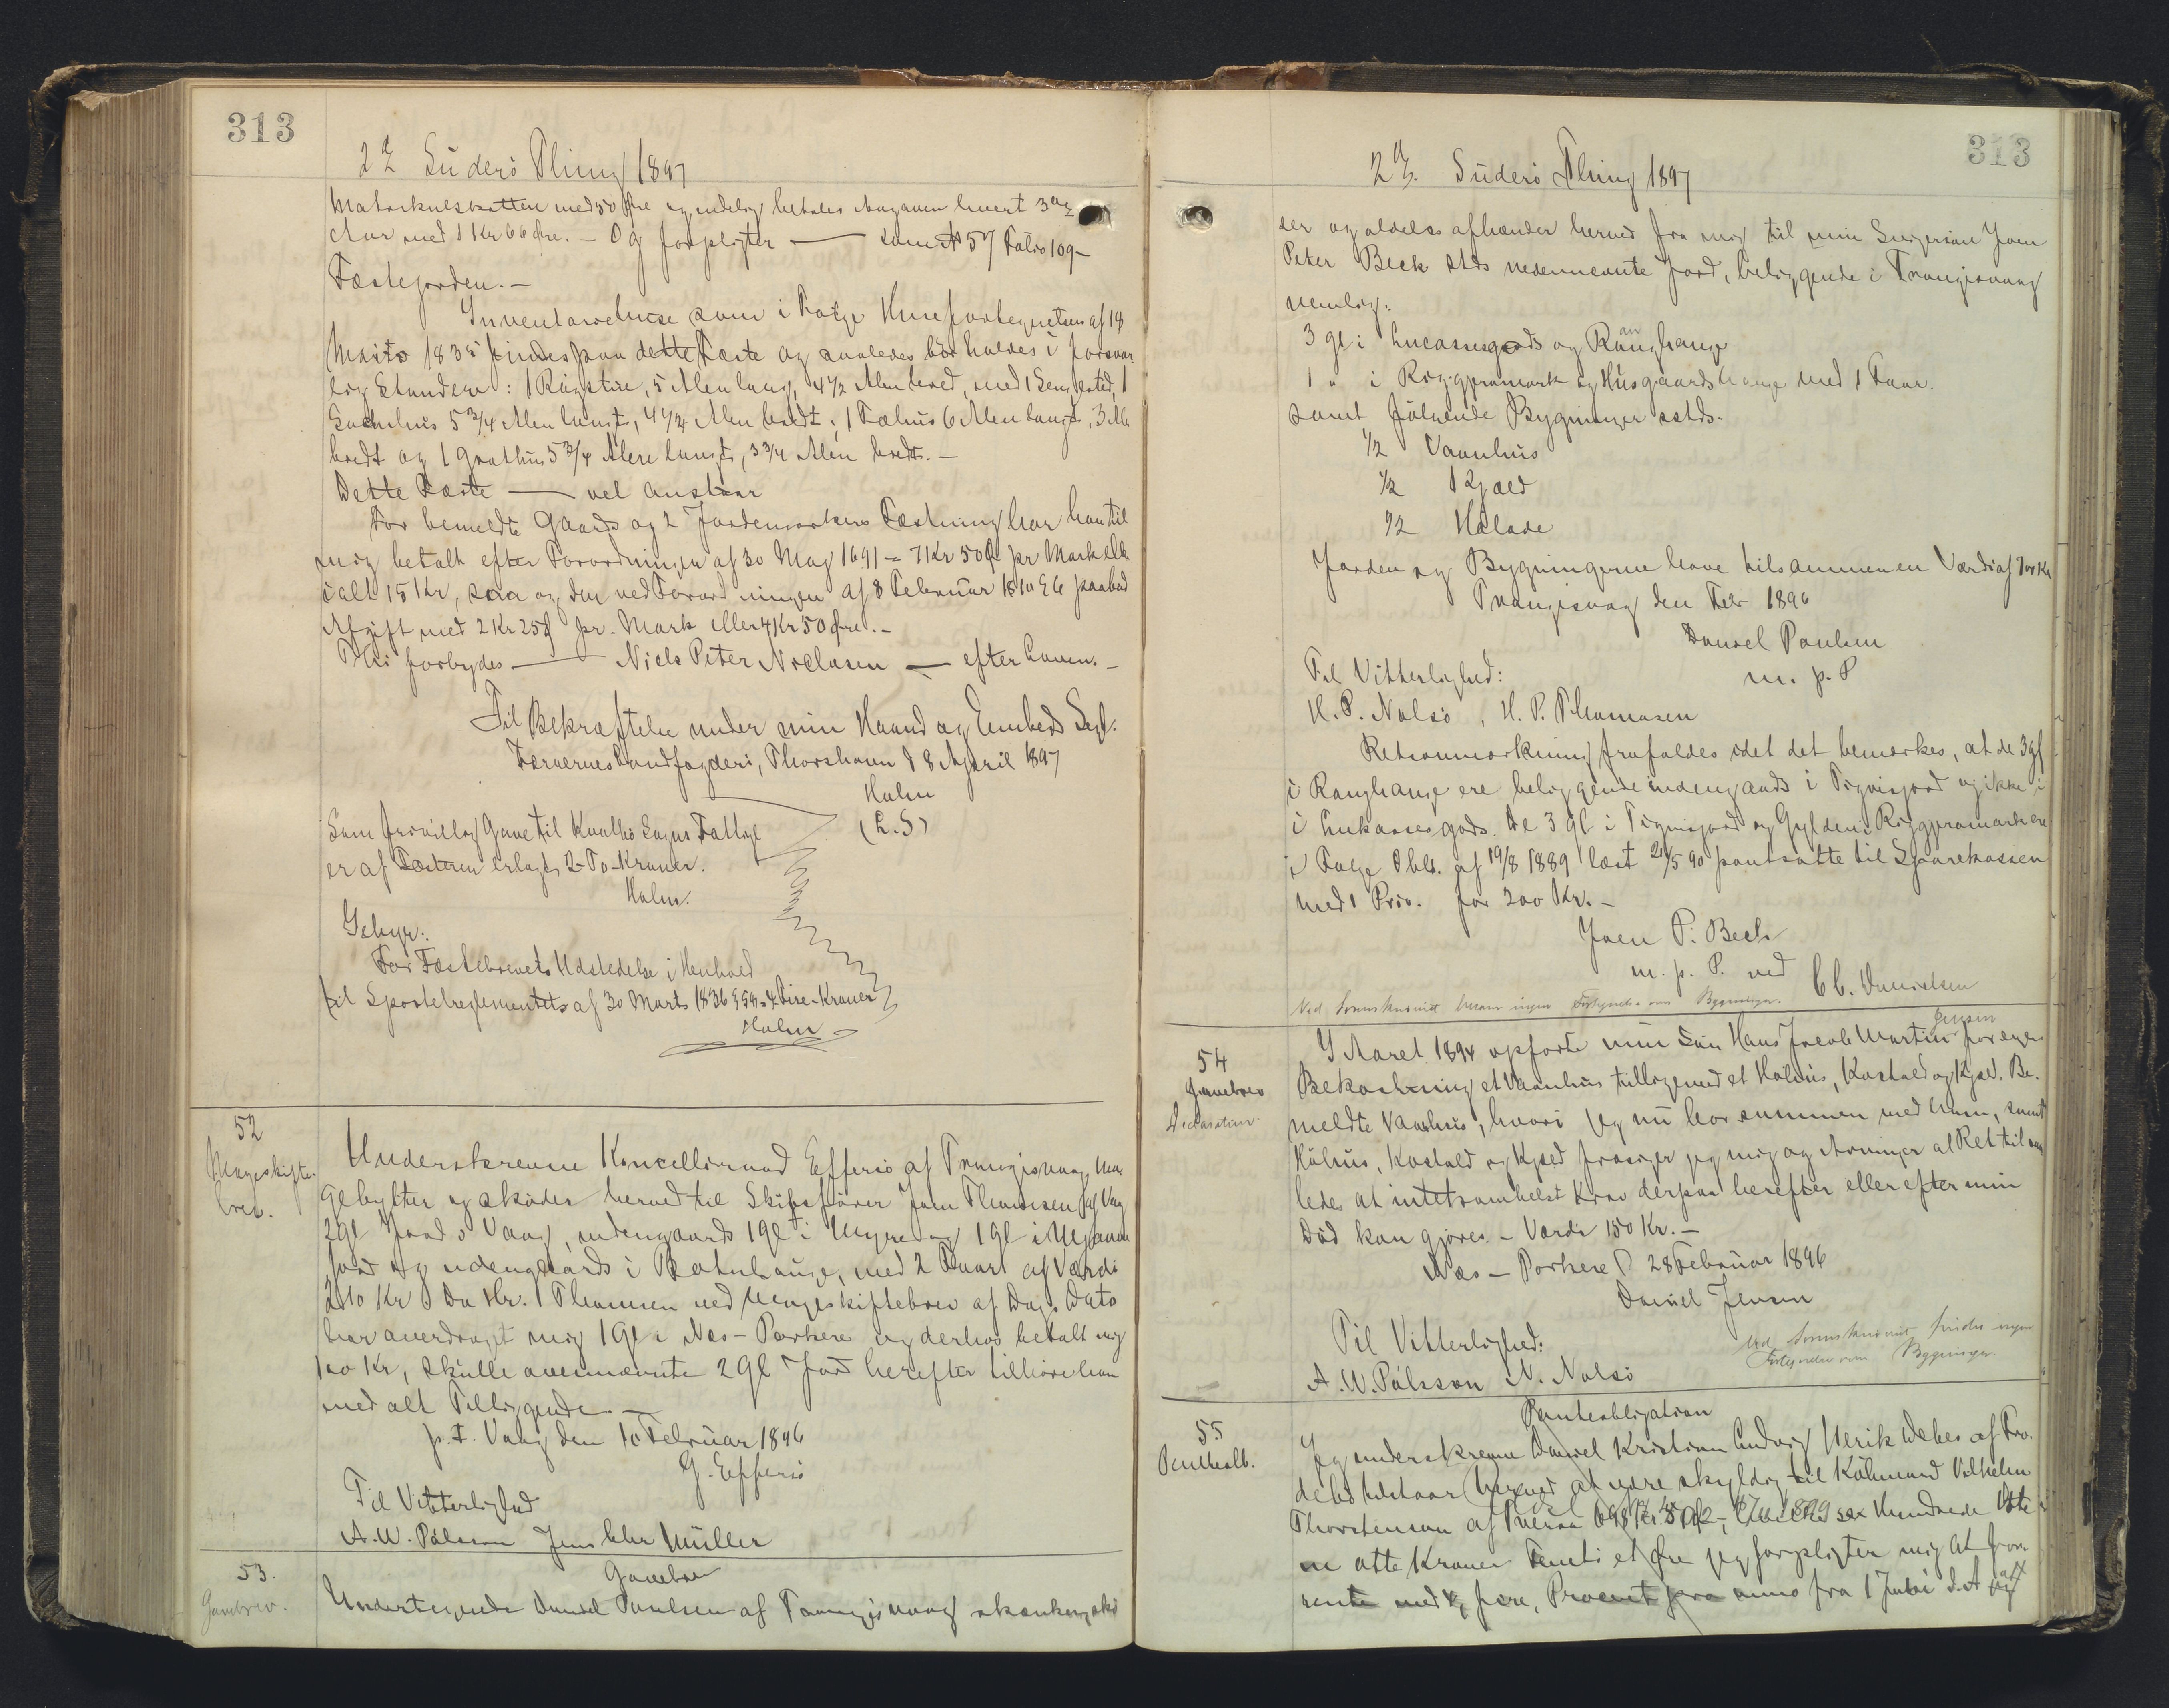 313
2 d Süderö Thing 1897
Matrikulskatten med 50 Øre og endelig betales Avgaven hvert 3die
Aar med 1 Kr 66 Øre. – Og forpligter — som № 57 Folio 109 –
Fæstejorden. –
Inventariehuse som i Følge Huusfortegnelsen af 18
Marts 1835 findes paa dette Fæste og saaledes bør holdes i forsvar
lig Standere: 1 Røgstue, 5 Alen lang, 4 1/2 Alen bred, med 1 Sengested, 1
5 3/4 Alen langt, 4 1/4 Alen bredt, 1 Fæhus 6 Alen langt, 3 Al
bredt og 1 Grothus 5 3/4 Alen langt, 3 3/4 Alen bredt. –
Dette Fæste — vel anstaar
For bemeldte Gaards og 2 Jordemarkers Fæstning har han til
mig betalt efter Forordningen af 30 May 1691 = 7 Kr 50 Ø pr Mark ell
ialt 15 Kr, saa og den ved Forordningen af 8 Februar 1810 § 6 paabud
Afgift med 2 Kr 25 Ø pr. Mark eller 4 Kr 50 Øre. –
Thi forbydes — Niels Peter Niclasen — efter Loven. –
Til Bekræftelse under min Haand og Embeds Segl.
Færøernes Landfogderi, Thorshavn d 8 April 1897
Halm
(L.S)
Som frivillig Gave til Kvalbø Sogns Fattige
er af Fæsteren erlagt 2 – To – Kroner.
Halm.
Gebyr:
For Fæstebrevets Udstedelse i Henhold
til Sportelreglementets af 30 Marts 1836 § 59 – 4 Fire – Kroner
Halm
52
Mageskifte-
brev.
Underskrevne Kancelliraad Effersö af Trangisvaag, Mag
gebytter og skøder herved til Skibsfører Joen Thomsen af Vaag
2 Gl Jord i Vaag, indengaards 1 Gl i Myre og 1 Gl i
jord og udengaards i Botnhauge, med 2 Faart af Værdi
210 Kr. Da Hr. Thomsen ved Mageskiftebrev af Dags Dato
har overdraget mig 1 Gl i Næs – Porkere og derhos betalt mig
100 Kr, skulle ovennævnte 2 Gl Jord herefter tilhøre ham
med alt Tilliggende. –
p. t. Vaag den 10 Februar 1896
G. Effersö
Til Vitterlighed
A. W. Pálsson Jens Chr Müller
53.
Gavebrev.
Gavebrev
Undertegnede Daniel Poulsen af Trangisvaag skænker, skø
313
2 d. Süderö Thing 1897
der og aldeles afhænder herved fra mig til min Svigersøn Joen
Peter Beck stds nedennævnte Jord, beliggende i Trangisvaag
nemlig:
3 gl i Lucassesgods og Ranghauge
1 " i Ryggjomark og Husgaardshauge med 1 Faar.
samt følgende Bygninger sstds.
1/2 Vaanhus
1/2 Kjæld
1/2 Hølade
Jorden og Bygningerne have tilsammen en Værdi af 700 Kr
Trangisvaag den Febr 1896
Daniel Poulsen
m. p. P
Til Vitterlighed:
H. P. Nolsö, H. P. Thomasen
Retsanmærkning frafaldes idet det bemærkes, at de 3 gl
i Ranghauge ere beliggende indengaards i Tignisjord og ikke i
i Lukassesgods. De 3 gl i Tignisjord og Gylden i Ryggjomark ere
i Følge Obl. af 19/8 1889 læst 21/5 90 pantsatte til Sparekassen
med 1 Prior. for 200 Kr. –
Joen P. Beck
m. p. P. ved C C. Danielsen
Ved Svenskunnet haves ingen Fortegnelse om Bygninger.
54
Gavebrev
Declaration
I Aaret 1894 opførte min Søn Hans Jacob Martin Jensen for egen
Bekostning et Vaanhus tilligemed et Høhus, Kostald og Kjæl. Be-
meldte Vaanhus, hvori jeg nu bor sammen med ham, samt
Høhus, Kostald og Kjæld frasiger jeg mig og Arvinger al Ret til saa
ledes at intetsomhelst Krav derpaa herefter eller efter min
Død kan gjøres. – Værdi 150 Kr. –
Næs – Porkere d 28 Februar 1896
Daniel Jensen
Til Vitterlighed:
A. W. Pálsson N. Nolsö
findes ingen
Fortegnelse om Bygninger.
55
Panteobl.
Panteobligation
Jeg underskrevne Daniel Kristian Ludvig Henrik Debes af Fro-
debø tilstaar herved at være skyldig til Købmand Vilhelm
Thorsteinson af Tveraa sex Hundrede Otte
en otte Kroner Femti et Øre jeg forpligter mig at for
rente med 4, fire, Procent pro anno fra 1 Juni d. A. aff